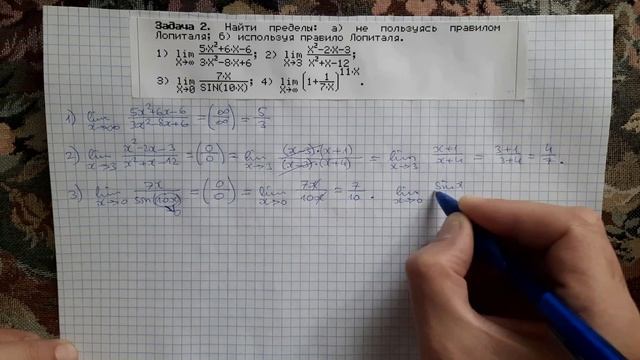 Задача 2. Найти пределы: а) не пользуясь правилом
Лопиталя; б) используя правило Лопиталя.
1) lim x→∞ (5·x²+6·x-6)/(3·x²-8·x+6); 2) lim x→3 (x²-2·x-3)/(x²+x-12);
3) lim x→0 (7·x)/(SIN(10·x)); 4) lim x→∞ (1+1/(7·x))^(11·x).
1) lim x→∞ (5x²+6x-6)/(3x²-8x+6) = (∞/∞) = 5/3
2) lim x→3 (x²-2x-3)/(x²+x-12) = (0/0) = lim x→3 ((x-3)·(x+1))/((x-3)·(x+4)) = lim x→3 (x+1)/(x+4) = (3+1)/(3+4) = 4/7.
3) lim x→0 7x/sin(10x) →0 = (0/0) = lim x→0 7x/10x = 7/10. lim x→0 sinx